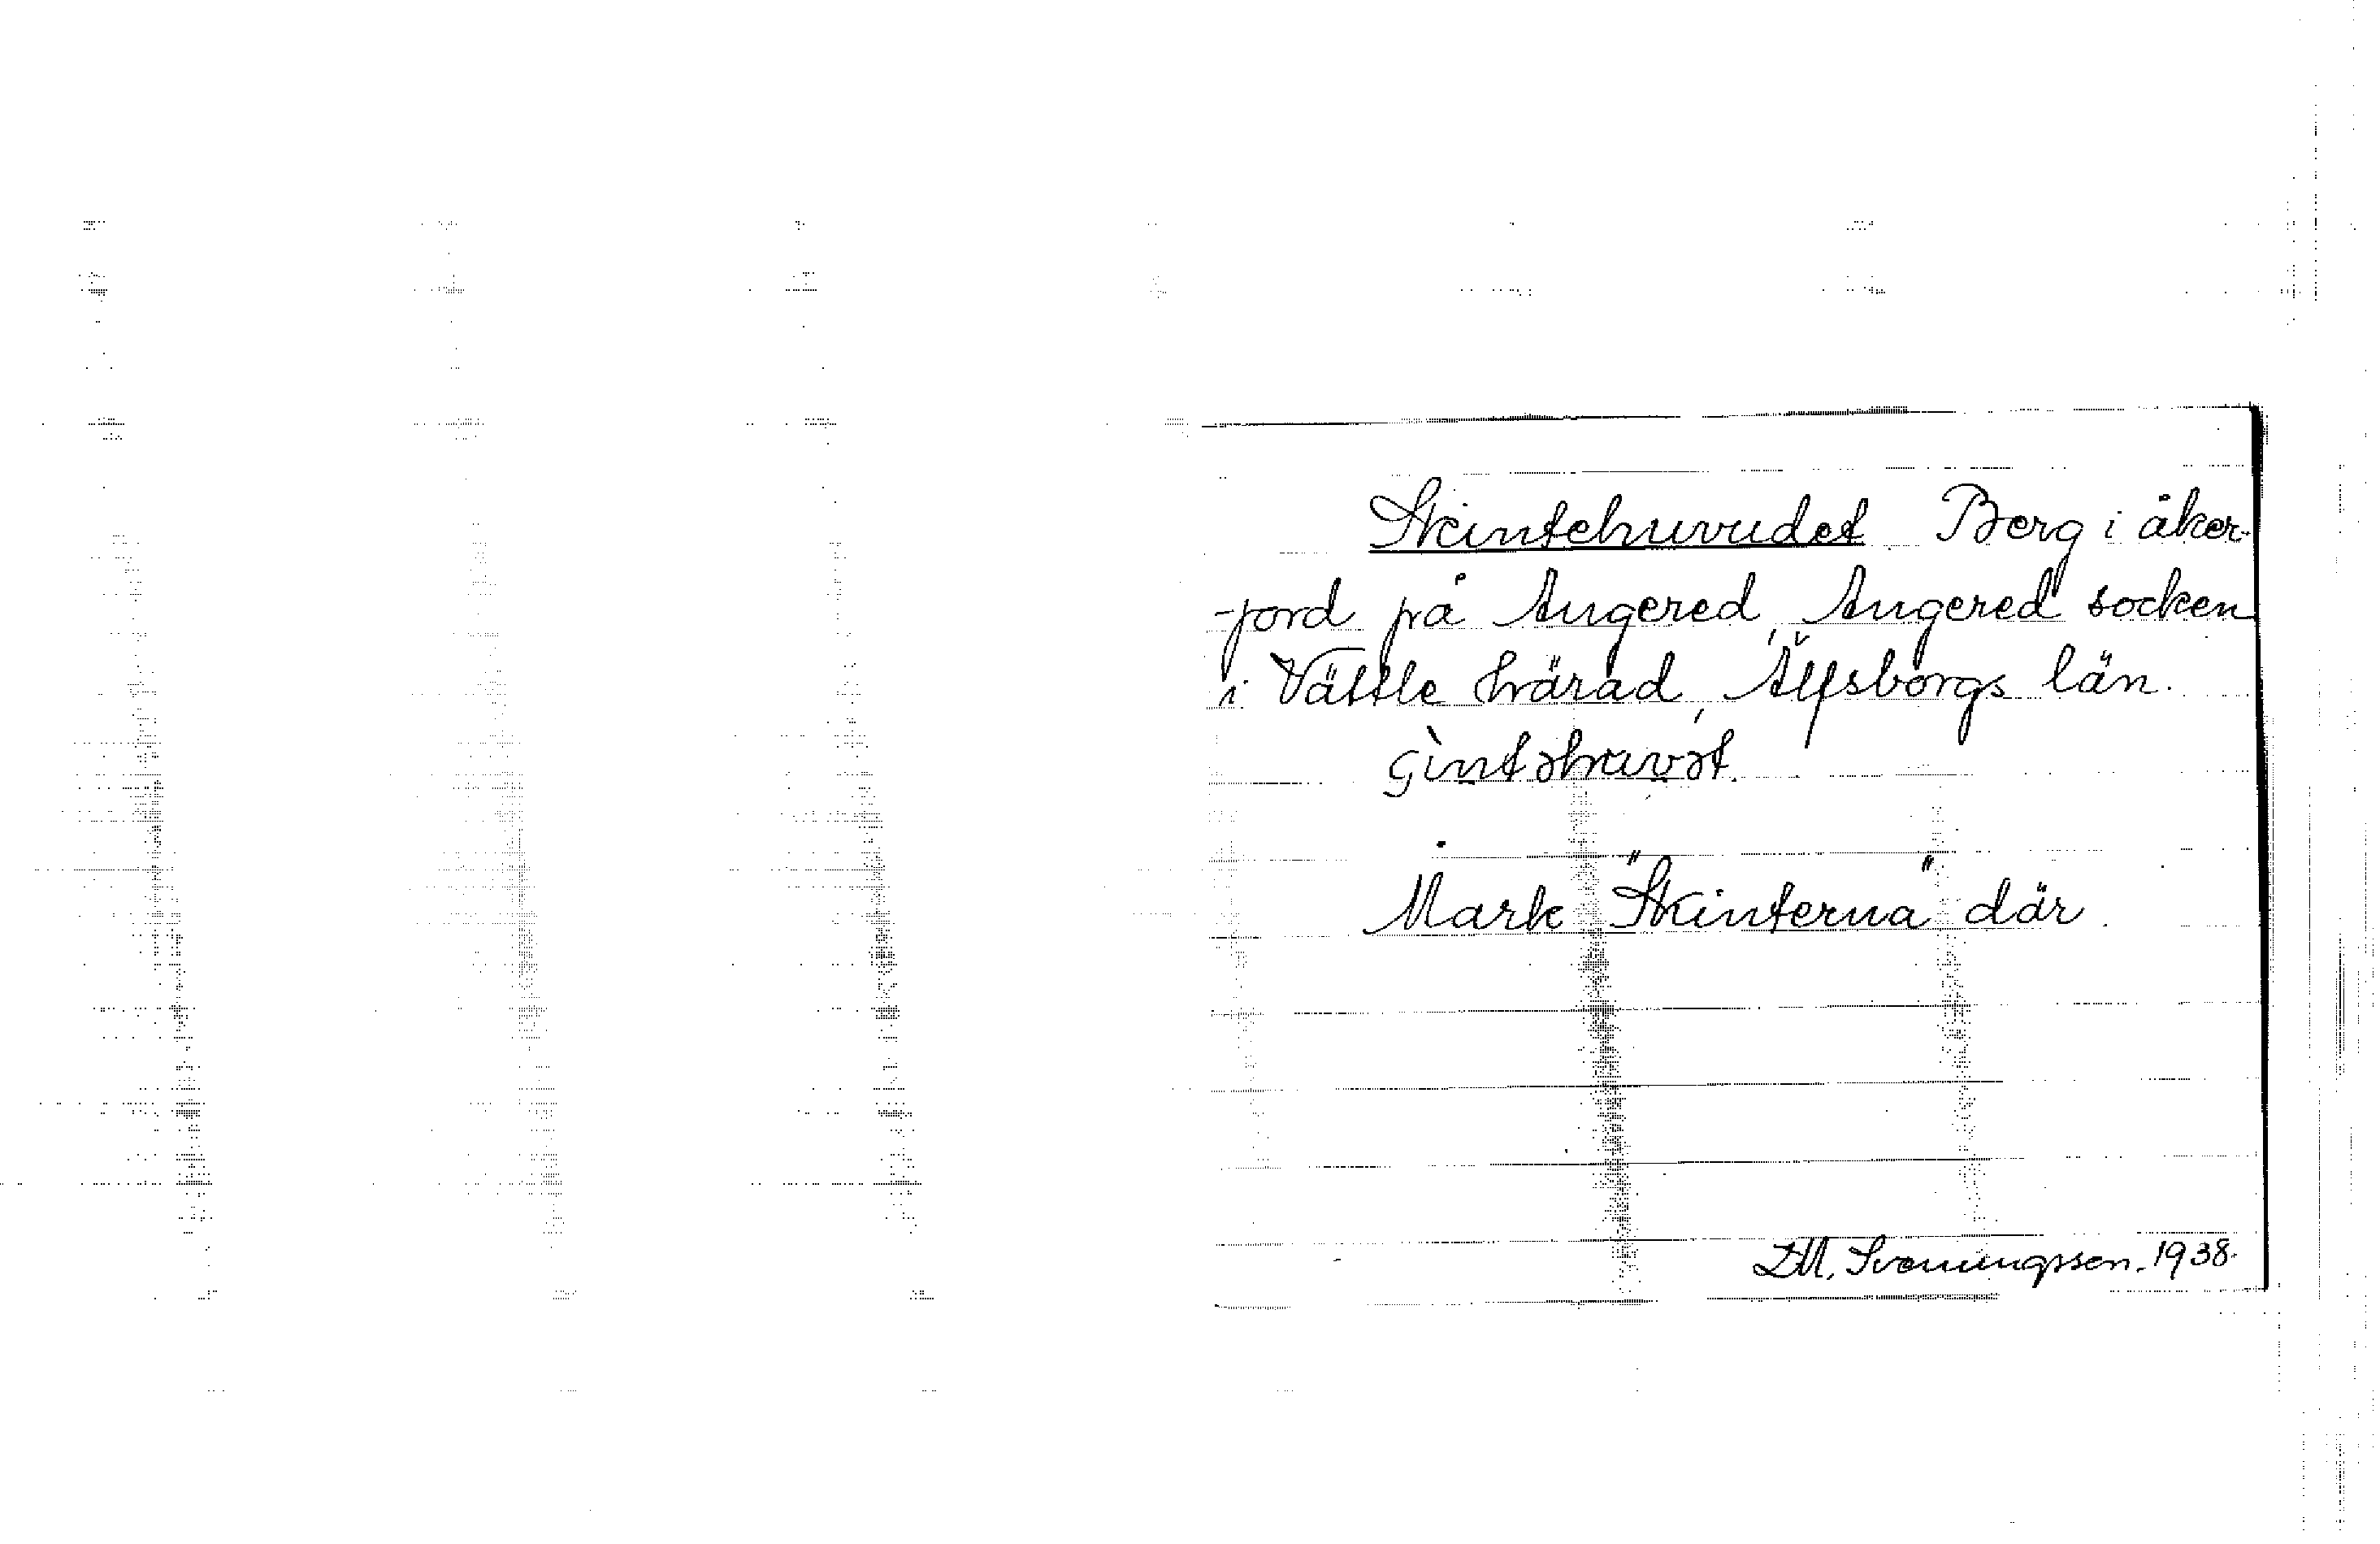 Skintehuvudet Berg i åker-
-jord på Angered, Angered socken
i Vättle härad, Älfsborgs län.
çìntəhuvət.
Mark "Skinterna" där.
D.M. Svenningsson. 1938.